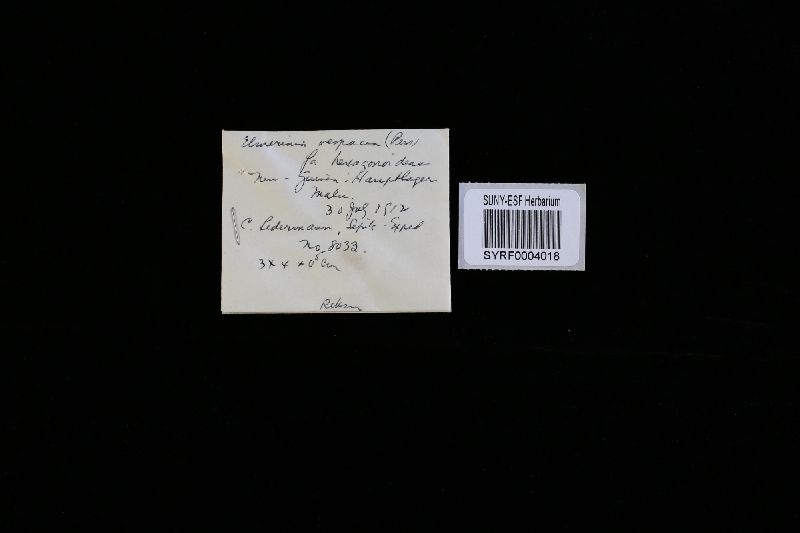 Elmerina vespacea (Pers)
fa hexagonoideae
"Neu-Guinea: Hauptlager
Malu.
30 July 1912
C. Ledermann, Sepik-Exped
No 8032.
3 x 4 x 0.5 cm
SUNY-ESF Herbarium
SYRF0004018